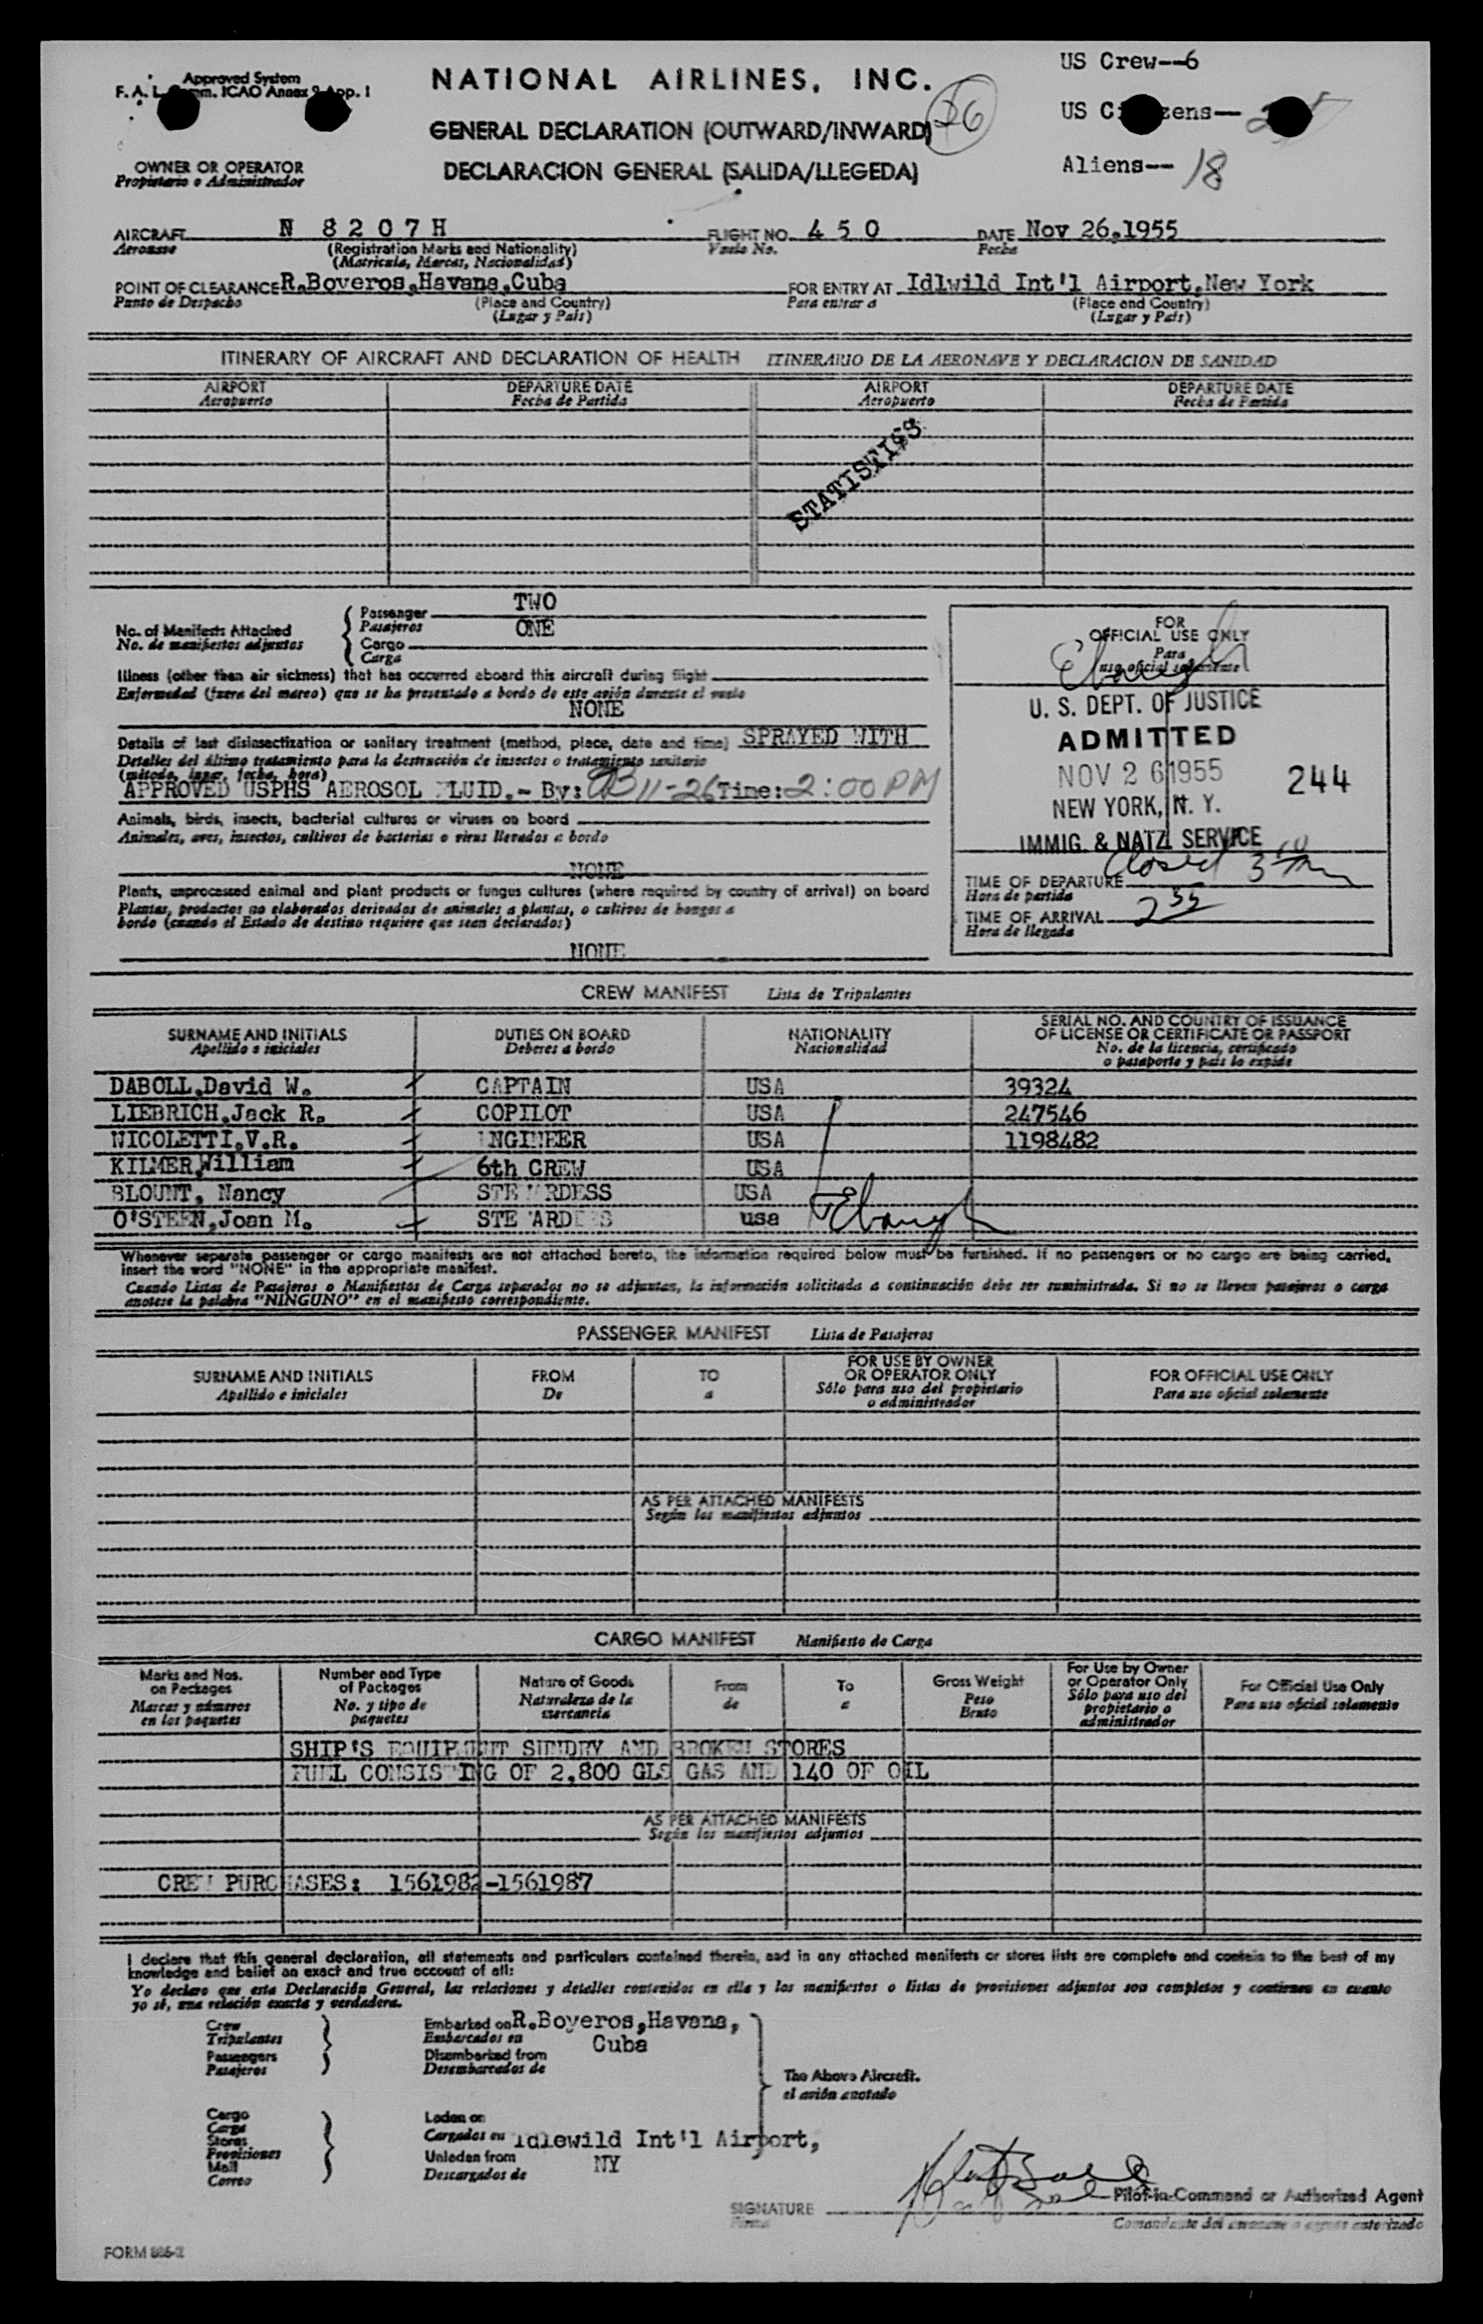 Approved System
F. A. L. Comm. ICAO Annex 9 App. 1
NATIONAL AIRLINES, INC.
GENERAL DECLARATION (OUTWARD/INWARD)
DECLARACION GENERAL (SALIDA/LLEGEDA)
26
US Crew--6
US Citizens--
Aliens-- 18
OWNER OR OPERATOR
Propietario o Administrador
AIRCRAFT N 8 2 0 7 H FLIGHT NO. 4 5 0 DATE Nov 26,1955
Aeronave (Registration Marks and Nationality) Vuelo No. Fecha
(Matricula, Marcas, Nacionalidad)
POINT OF CLEARANCE R.Boyeros,Havana,Cuba FOR ENTRY AT Idlwild Int'l Airport,New York
Punto de Despacho (Place and Country) Para entrar a (Place and Country)
(Lugar y Pais) (Lugar y Pais)
ITINERARY OF AIRCRAFT AND DECLARATION OF HEALTH ITINERARIO DE LA AERONAVE Y DECLARACION DE SANIDAD
AIRPORT DEPARTURE DATE AIRPORT DEPARTURE DATE
Aeropuerto Fecha de Partida Aeropuerto Fecha de Partida
STATISTICS
No. of Manifests Attached Passenger TWO
No. de manifiestos adjuntos Pasajeros ONE
Cargo
Carga
Illness (other than air sickness) that has occurred aboard this aircraft during flight
Enfermedad (fuera del mareo) que se ha presentado a bordo de este avión durante el vuelo
NONE
Details of last disinsectization or sanitary treatment (method, place, date and time) SPRAYED WITH
Detalles del último tratamiento para la destrucción de insectos o tratamiento sanitario
(método, lugar, fecha, hora)
APPROVED USPHS AEROSOL FLUID.- By: 11-26 Time: 2:00 PM
Animals, birds, insects, bacterial cultures or viruses on board
Animales, aves, insectos, cultivos de bacterias o virus llevados a bordo
NONE
Plants, unprocessed animal and plant products or fungus cultures (where required by country of arrival) on board
Plantas, productos no elaborados derivados de animales a plantas, o cultivos de hongos a
bordo (cuando el Estado de destino requiere que sean declarados)
NONE
FOR
OFFICIAL USE ONLY
Para
uso oficial solamente
U. S. DEPT. OF JUSTICE
ADMITTED
NOV 26 1955 244
NEW YORK, N. Y.
IMMIG. & NATZ. SERVICE
Closed 3 10 PM
TIME OF DEPARTURE
Hora de partida
TIME OF ARRIVAL 2 55
Hora de llegada
CREW MANIFEST Lista de Tripulantes
SURNAME AND INITIALS DUTIES ON BOARD NATIONALITY SERIAL NO. AND COUNTRY OF ISSUANCE
Apellido e iniciales Deberes a bordo Nacionalidad OF LICENSE OR CERTIFICATE OR PASSPORT
No. de la licencia, certificado
o pasaporte y pais lo expide
DABOLL,David W. CAPTAIN USA 39324
LIEBRICH,Jack R. COPILOT USA 247546
NICOLETTI,V.R. ENGINEER USA 1198482
KILMER,William 6th CREW USA
BLOUNT, Nancy STEWARDESS USA
O'STEEN,Joan M. STEWARDESS usa
Whenever separate passenger or cargo manifests are not attached hereto, the information required below must be furnished. If no passengers or no cargo are being carried,
insert the word "NONE" in the appropriate manifest.
Cuando Listas de Pasajeros o Manifiestos de Carga separados no se adjuntan, la información solicitada a continuación debe ser suministrada. Si no se lleven pasajeros o carga
anotese la palabra "NINGUNO" en el manifiesto correspondiente.
PASSENGER MANIFEST Lista de Pasajeros
SURNAME AND INITIALS FROM TO FOR USE BY OWNER FOR OFFICIAL USE ONLY
Apellido e iniciales De a OR OPERATOR ONLY Para uso oficial solamente
Sólo para uso del propietario
o administrador
AS PER ATTACHED MANIFESTS
Según los manifiestos adjuntos
CARGO MANIFEST Manifiesto de Carga
Marks and Nos. Number and Type Nature of Goods From To Gross Weight For Use by Owner For Official Use Only
on Packages of Packages Naturaleza de la de a Peso or Operator Only Para uso oficial solamente
Marcas y números No. y tipo de mercancia Bruto Sólo para uso del
en los paquetes paquetes propietario o
administrador
SHIP'S EQUIPMENT SUNDRY AND BROKEN STORES
FUEL CONSISTING OF 2,800 GLS GAS AND 140 OF OIL
AS PER ATTACHED MANIFESTS
Según los manifiestos adjuntos
CREW PURCHASES: 1561982-1561987
I declare that this general declaration, all statements and particulars contained therein, and in any attached manifests or stores lists are complete and contain to the best of my
knowledge and belief an exact and true account of all:
Yo declaro que esta Declaración General, las relaciones y detalles contenidos en ella y los manifiestos o listas de provisiones adjuntos son completos y contienen en cuanto
yo sé, una relación exacta y verdadera.
Crew Embarked on R.Boyeros,Havana,
Tripulantes Embarcados en Cuba
Passengers Disembarked from
Pasajeros Desembarcados de
The Above Aircraft.
el avión anotado
Cargo Laden on
Carga Cargados en Idlewild Int'l Airport,
Stores
Provisiones Unladen from NY
Mail Descargados de
Correo
SIGNATURE Pilot-in-Command or Authorized Agent
Firma Comandante del aeronave o agente autorizado
FORM 886-2